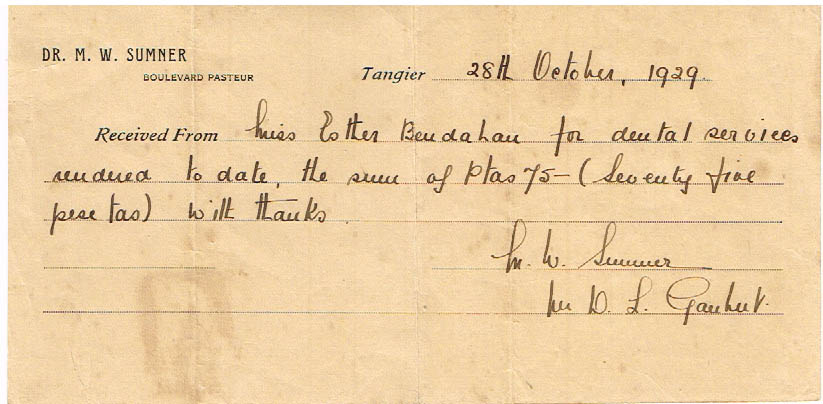 DR. M. W. SUMNER
BOULEVARD PASTEUR
Tangier 28th October, 1929.
Received From Miss Esther Bendahan for dental services
rendered to date, the sum of Ptas 75- (Seventy five
pesetas) with thanks
M. W. Sumner
D. L.